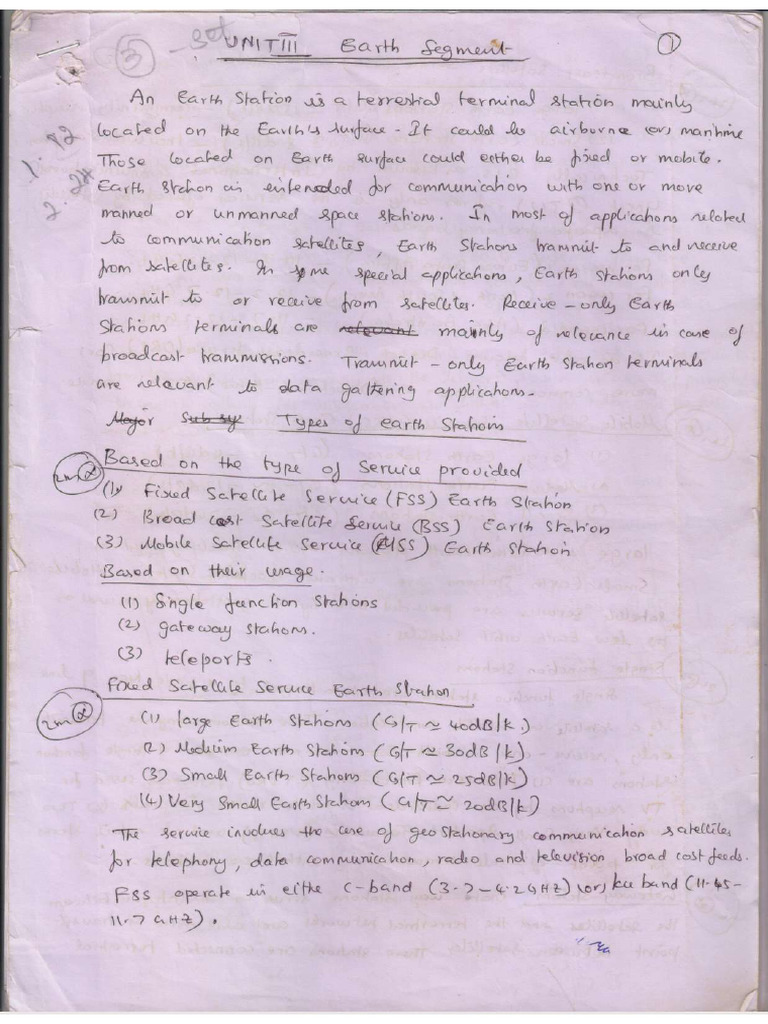 3 - 3rd UNIT III Earth Segment 1
An Earth Station is a terrestial terminal station mainly
located on the Earth's surface - It could be airborne (or) maritime
Those located on Earth surface could either be fixed or mobile.
1. 12
Earth Station is entended for communication with one or more
2. 24
manned or unmanned space stations. In most of applications related
to communication satellites, Earth Stations transmit to and receive
from satellites. In some special applications, Earth stations only
transmit to or receive from satellites. Receive-only Earth
Stations terminals are relevant mainly of relevance in case of
broadcast transmissions. Transmit-only Earth Station terminals
are relevant to data gathering applications.
Major Sub sy Types of earth Stations
Based on the type of Service provided
2m
(1) Fixed Satellite Service (FSS) Earth Station
(2) Broad cast Satellite Service (BSS) Earth Station
(3) Mobile Satellite Service (MSS) Earth Station
Based on their usage.
(1) Single function stations
(2) gateway stations.
(3) teleports.
Fixed Satellite Service Earth Station
2m
(1) large Earth Stations (G/T ≃ 40dB/k.)
(2) Medium Earth Stations (G/T ≃ 30dB/k)
(3) Small Earth Stations (G/T ≃ 25dB/k)
(4) Very Small Earth Stations (G/T ≃ 20dB/k)
The service involves the use of geo Stationary communication satellites
for telephony, data communication, radio and television broad cost feeds.
FSS operate in eithe C-band (3.7-4.2 GHZ) (or) ku band (11.45-
11.7 GHZ).